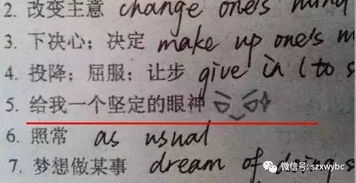 2. 改变主意 change one's mind
3. 下决心；决定 make up one's m
4. 投降；屈服；让步 give in (to s
5. 给我一个坚定的眼神
6. 照常 as usual
7. 梦想做某事 dream of doing s
微信号: szxwybc